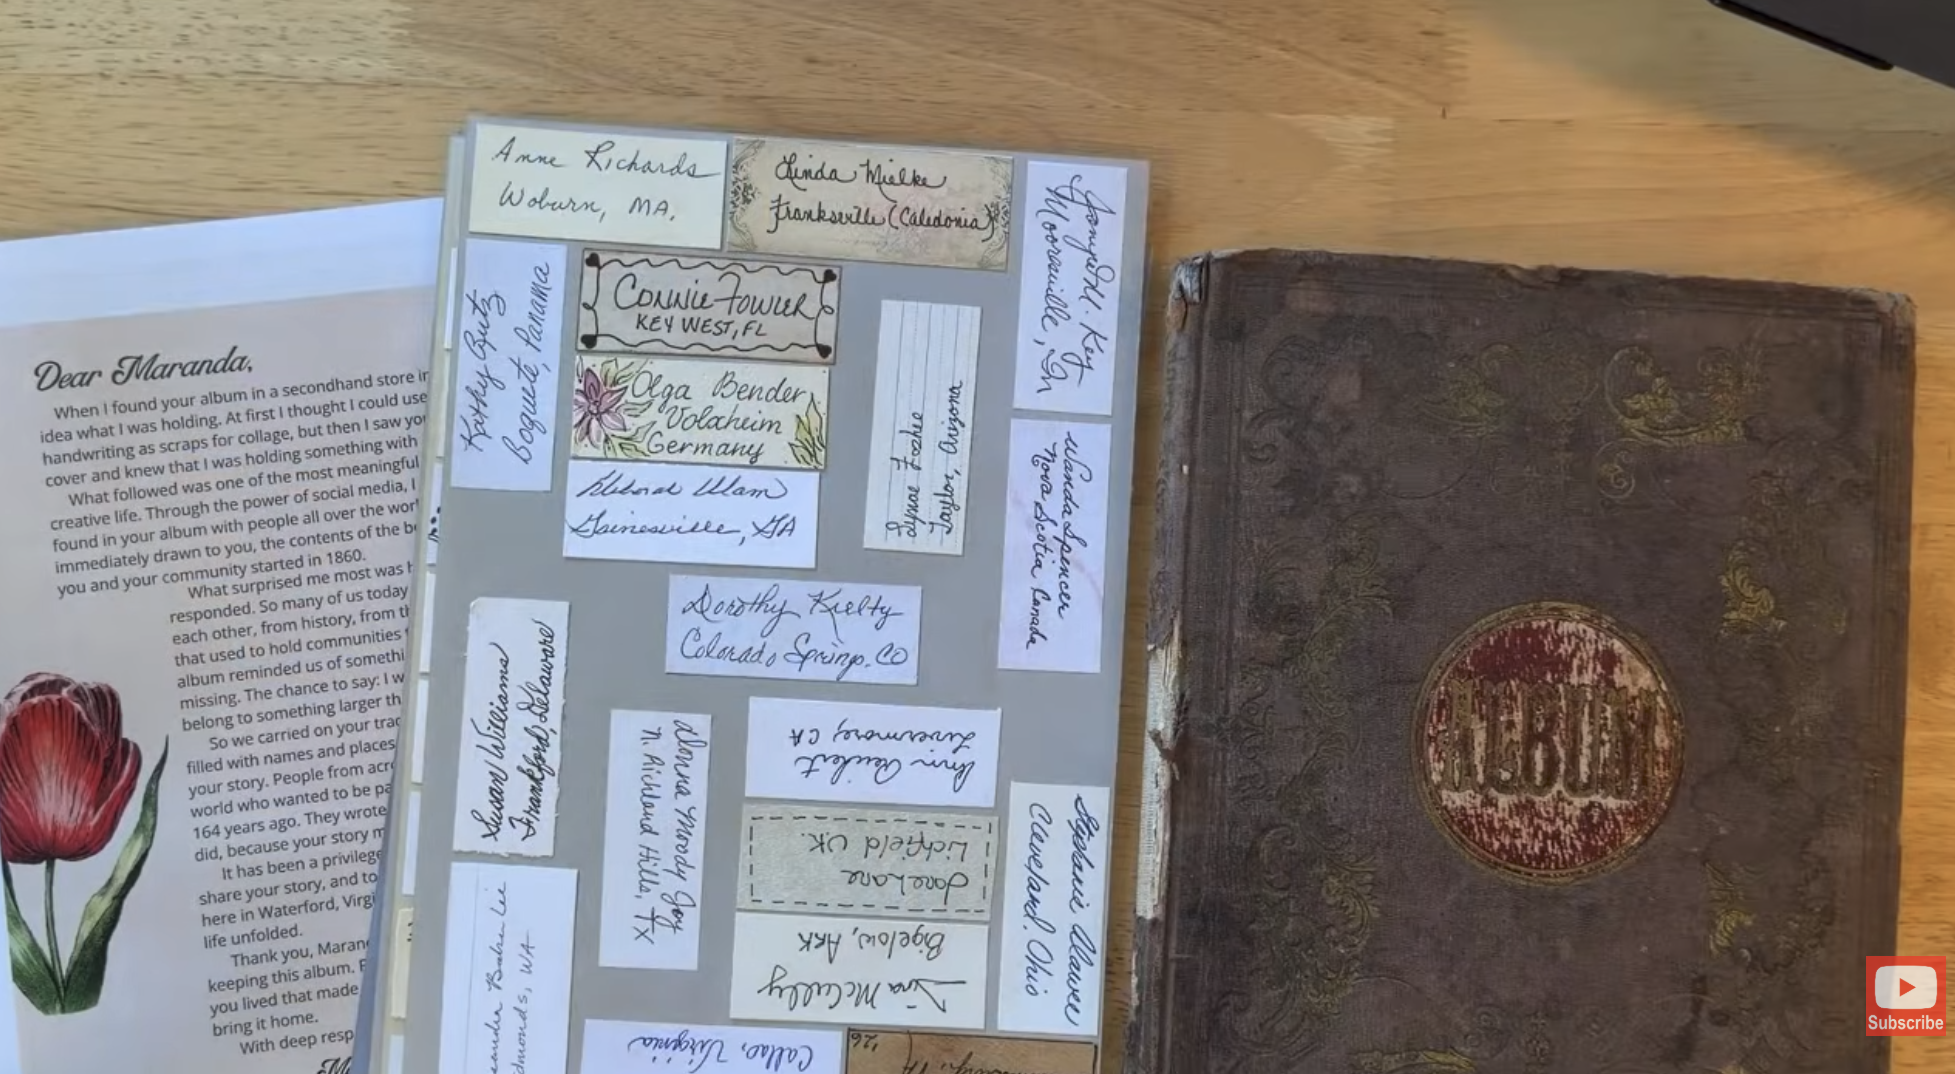 Dear Maranda,
When I found your album in a secondhand store in
idea what I was holding. At first I thought I could use
handwriting as scraps for collage, but then I saw you
cover and knew that I was holding something with
What followed was one of the most meaningful
creative life. Through the power of social media, I
found in your album with people all over the wor
immediately drawn to you, the contents of the b
you and your community started in 1860.
What surprised me most was h
responded. So many of us today
each other, from history, from th
that used to hold communities
album reminded us of somethi
missing. The chance to say: I w
belong to something larger th
So we carried on your trad
filled with names and places
your story. People from acro
world who wanted to be pa
164 years ago. They wrote
did, because your story m
It has been a privilege
share your story, and to
here in Waterford, Virgi
life unfolded.
Thank you, Maran
keeping this album.
you lived that made
bring it home.
With deep resp
Anne Richards
Woburn, MA.
Linda Mielke
Franksville (Caledonia)
Key
Mooresville, In
Kathy Butz
Boquete, Panama
Connie Fowler
KEY WEST, FL
Olga Bender
Volxheim
Germany
Lynae Foshee
Taylor, Arizona
Wanda Spencer
Nova Scotia Canada
Deborah Ulam
Gainesville, GA
Dorothy Kielty
Colorado Springs. CO
Susan Williams
Frankford, Delaware
Donna Moody Joy
N. Richland Hills, TX
Ann
Livermore, CA
Jane Lane
Lichfield UK.
Tina McCully
Bigelow, ARK
Stephanie
Cleveland. Ohio
Lee
dmonds, WA
Callao, Virginia
'26
ALBUM
Subscribe